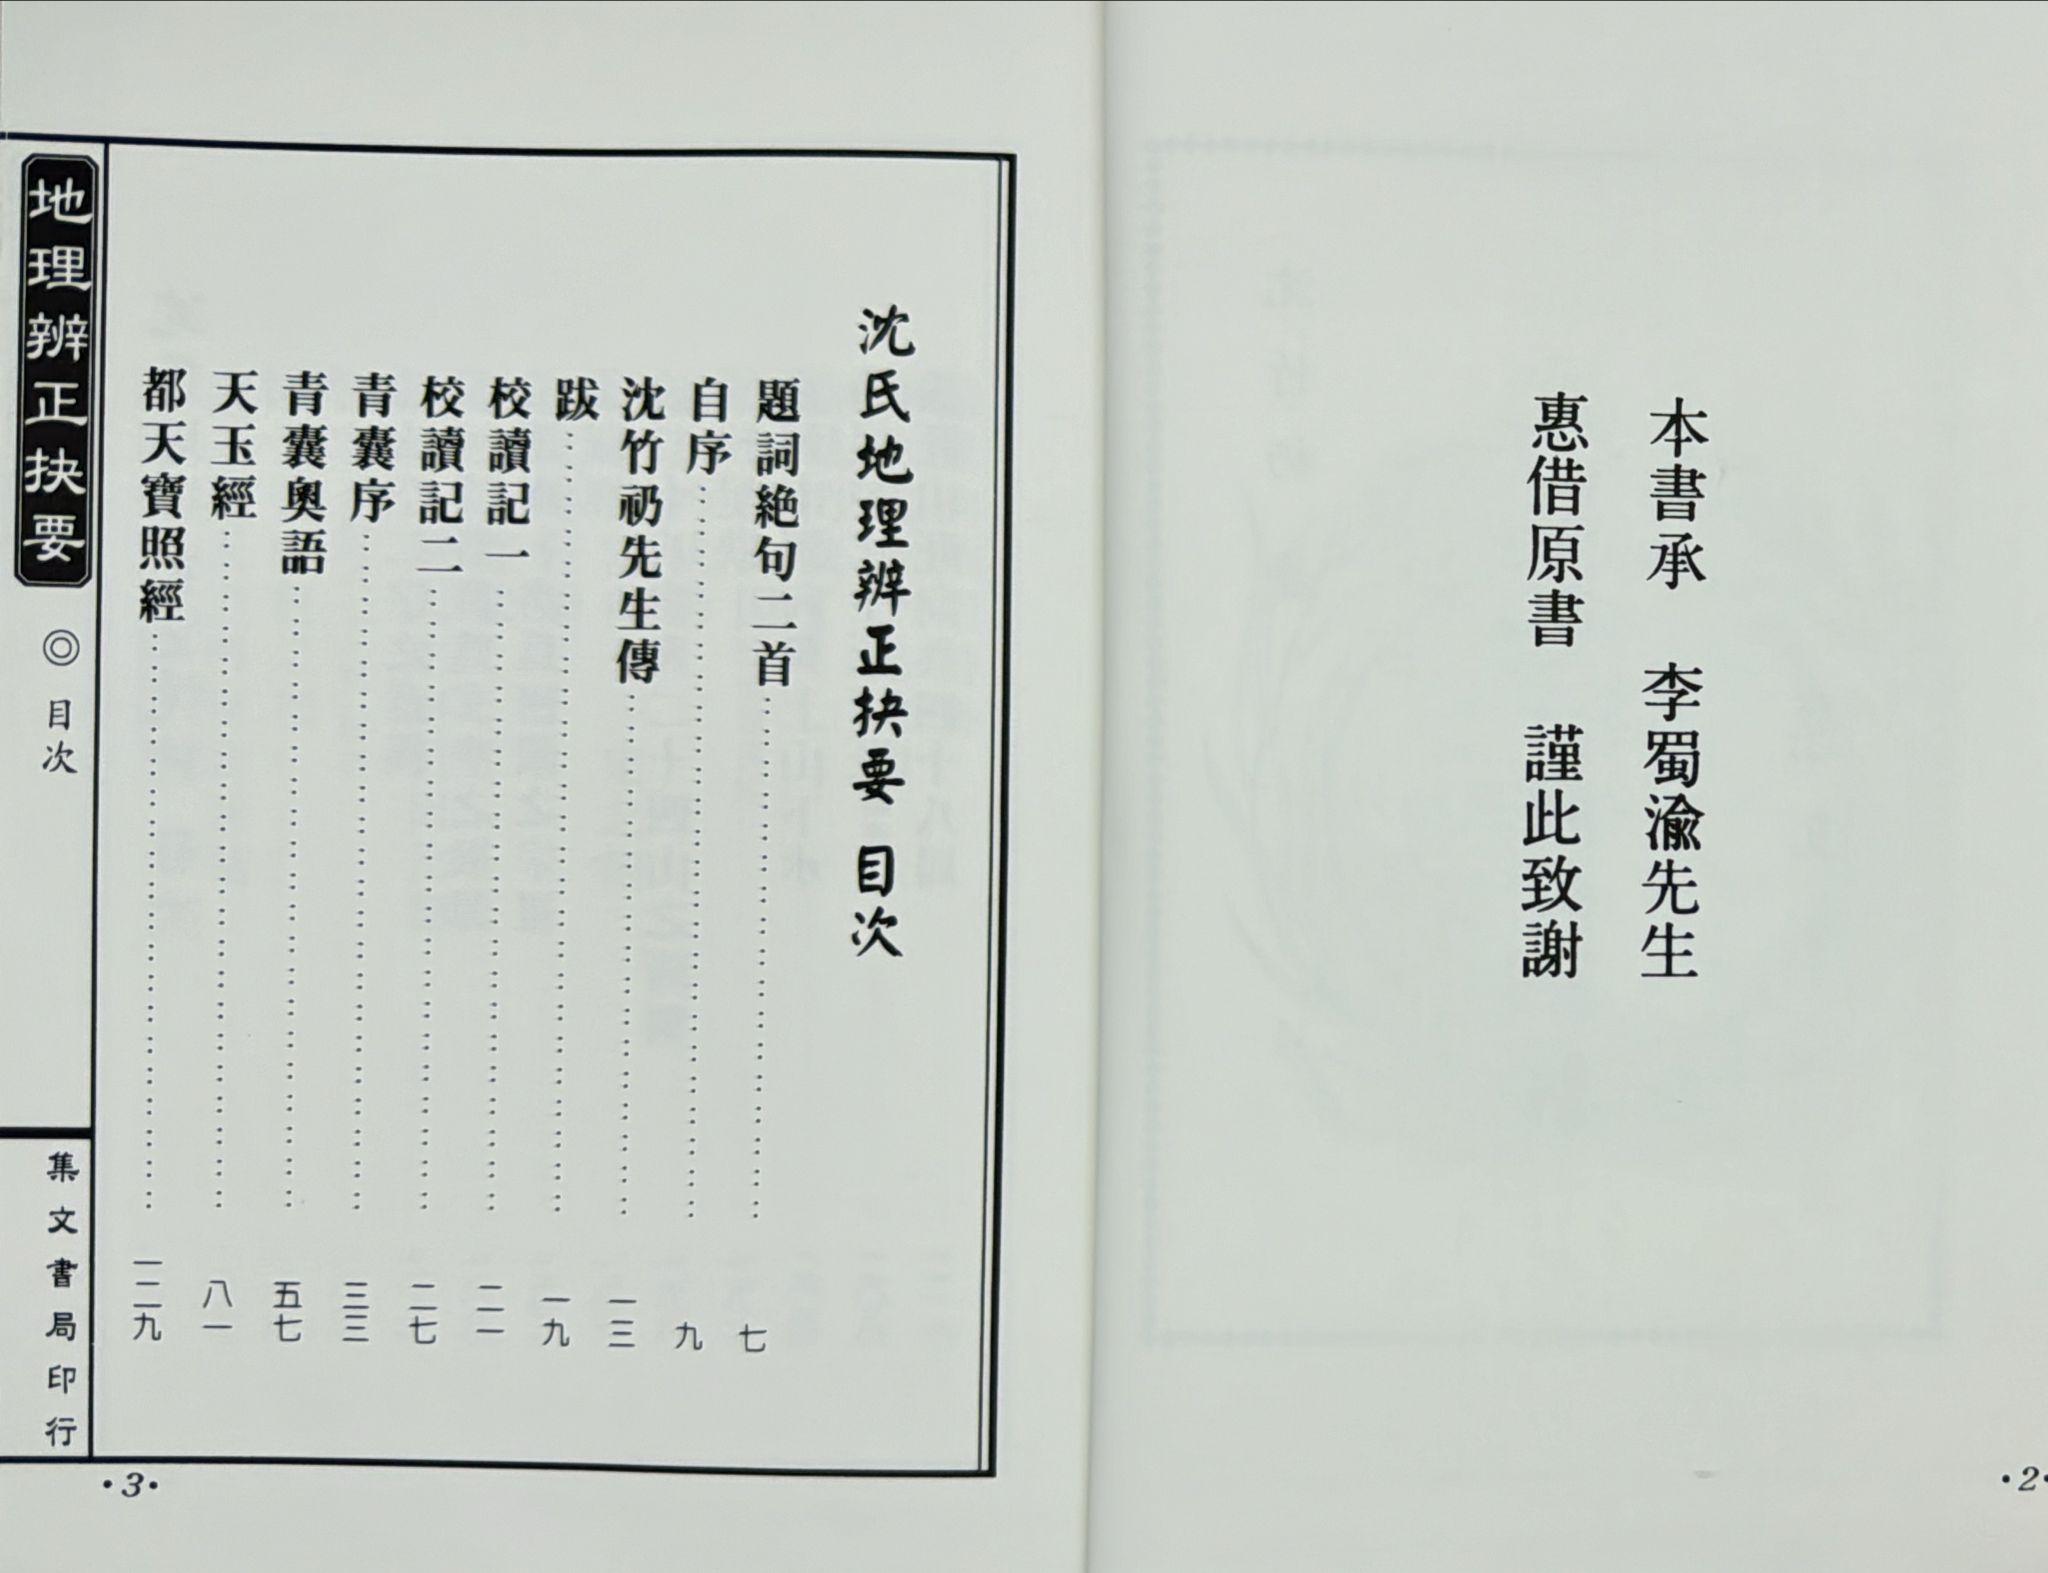 本書承　李蜀渝先生
惠借原書　謹此致謝
·2·
沈氏地理辨正抉要 目次
題詞絕句二首……七
自序……九
沈竹礽先生傳……一三
跋……一九
校讀記一……二一
校讀記二……二七
青囊序……三三
青囊奧語……五七
天玉經……八一
都天寶照經……一二九
地理辨正抉要 ◎目次
集文書局印行
·3·